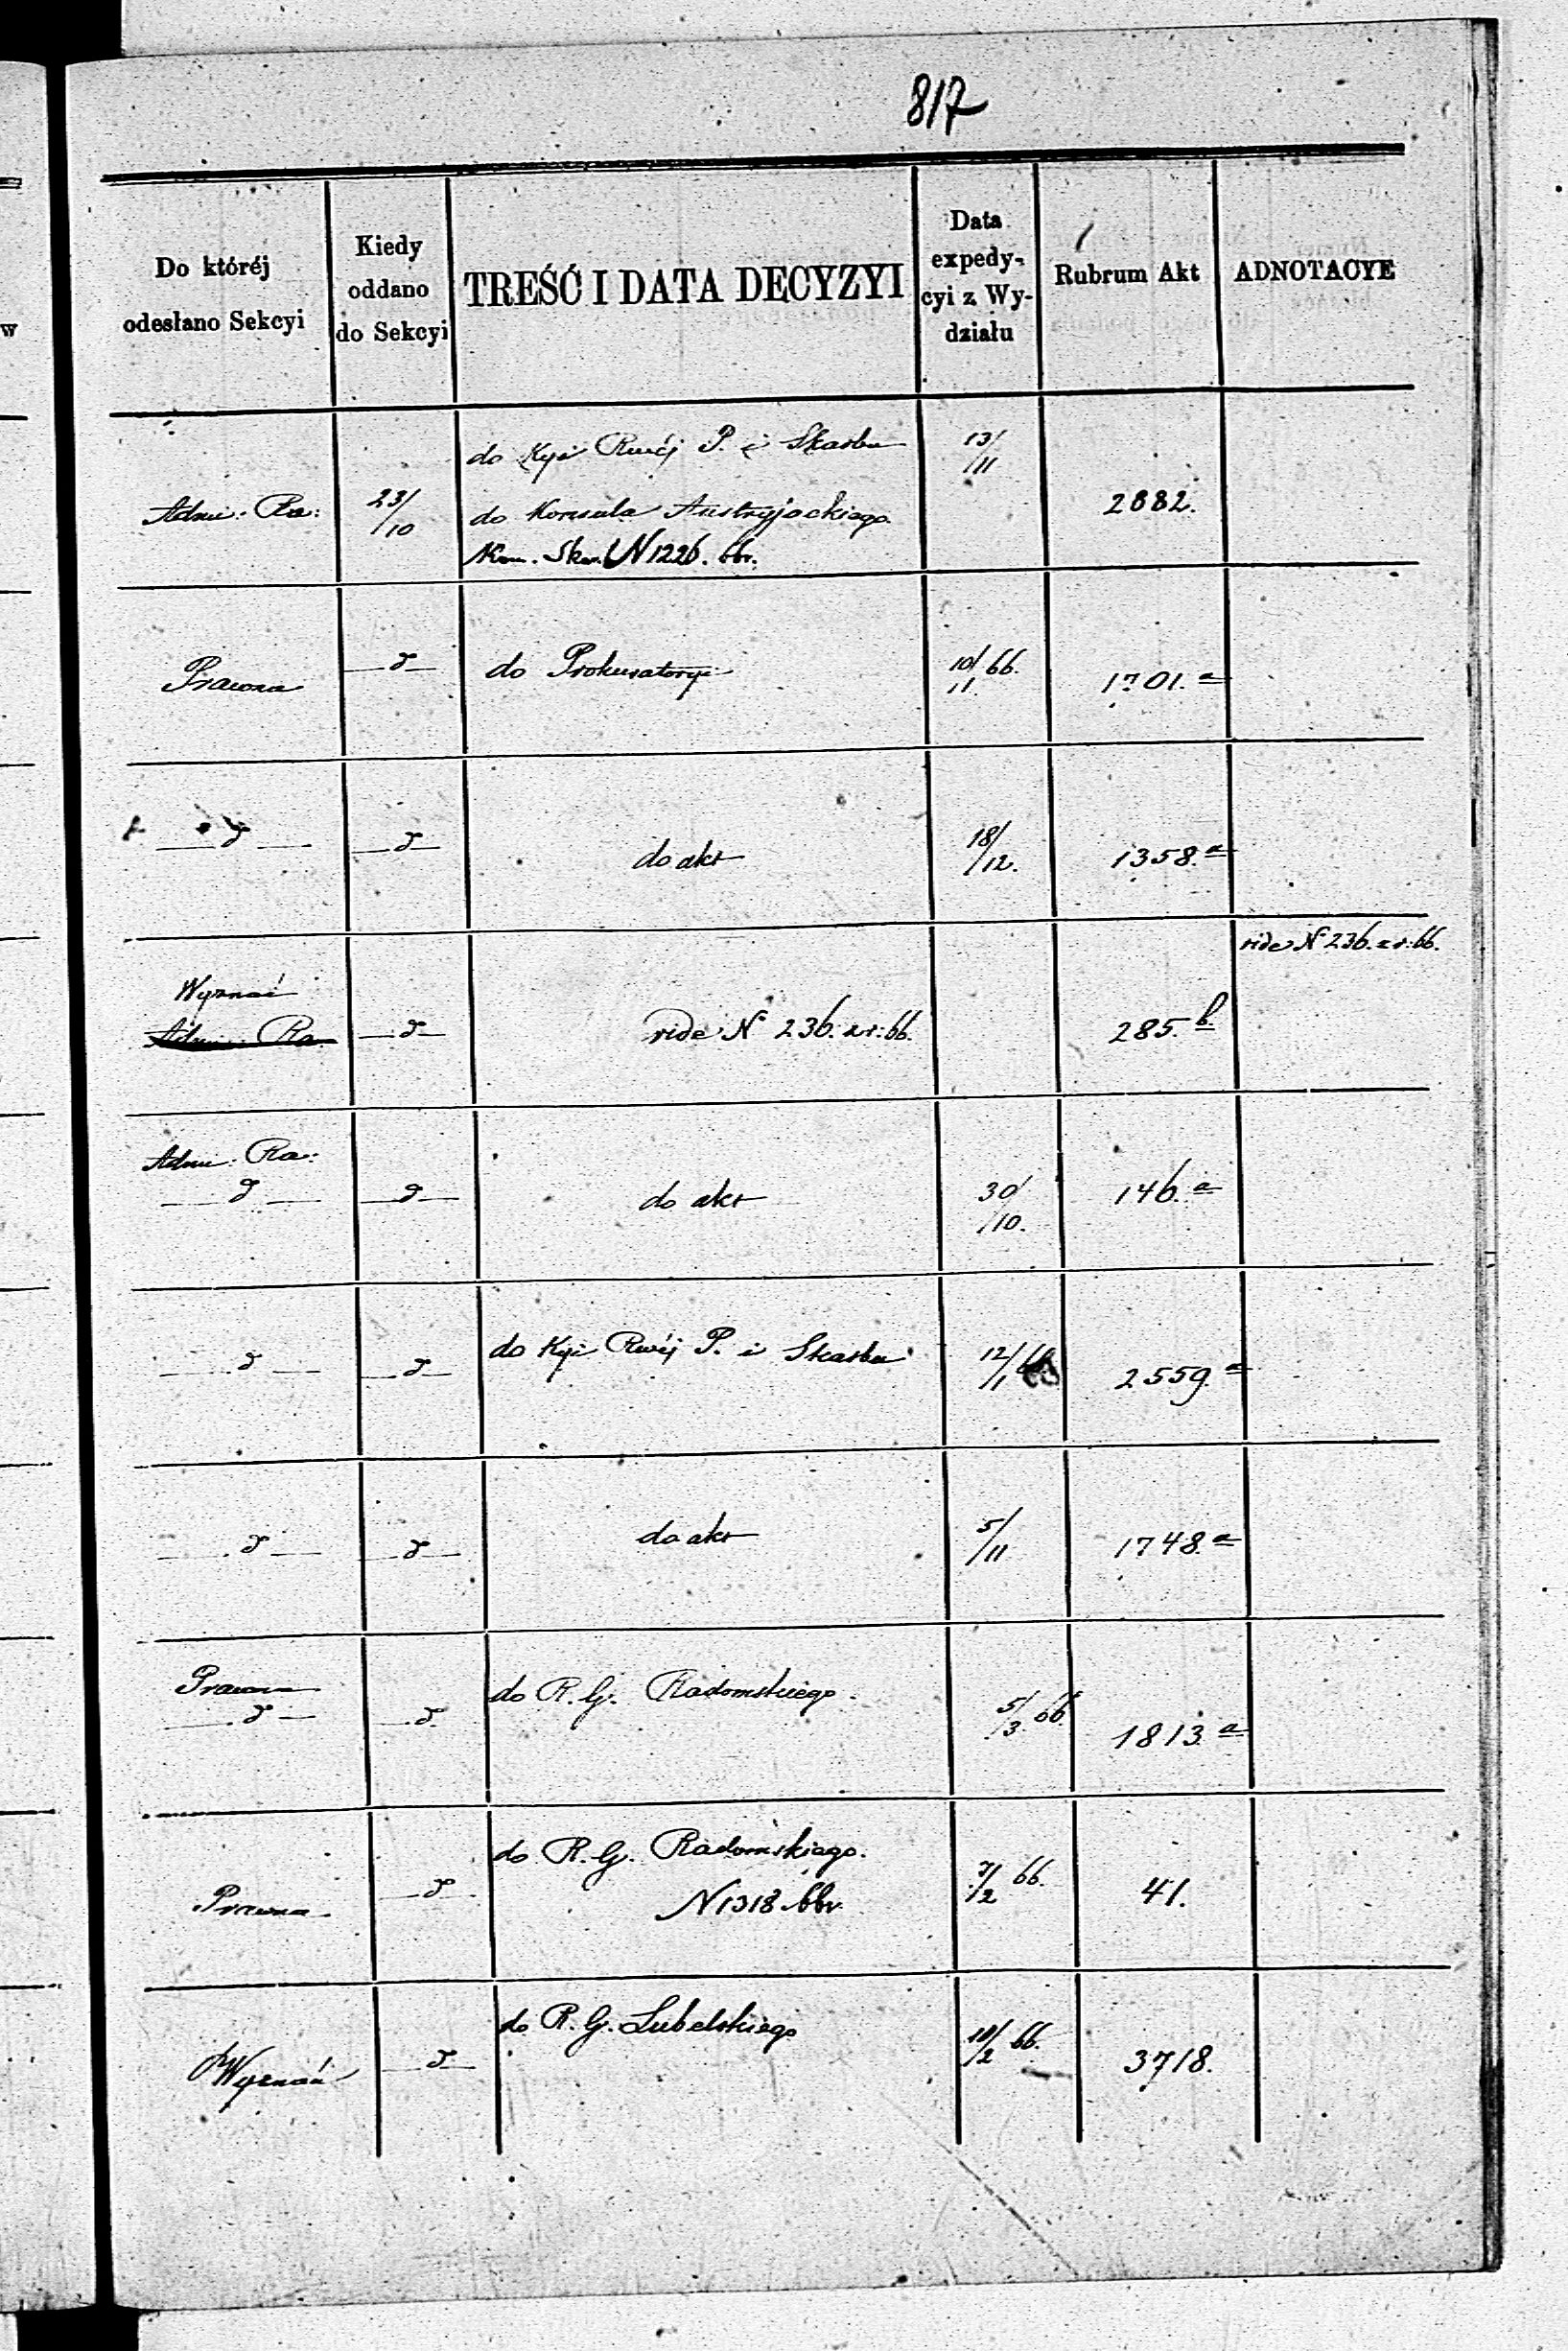 817
Do któréj
odesłano Sekcyi
Kiedy
oddano
do Sekcyi
TREŚĆ I DATA DECYZYI
Data
expedy-
cyi z Wy-
działu
Rubrum Akt
ADNOTACYE
do Kyi Rwéj P. i Skarbu
13/11
Adm: Ra:
23/10
do Konsula Austryjackiego
2882.
Kom. Skar. N 1226. 66r.
Prawna
— d —
do Prokuratoryi
10/11 66.
1701. a
— d —
— d —
do akt
18/12.
1358. a
vide N 236. z r: 66.
Wyznań
Adm: Ra:
— d —
vide N 236. z r: 66.
285. b.
Adm: Ra:
— d —
— d —
do akt
30/10.
146. a
— d —
— d —
do Kyi Rwéj P. i Skarbu
12/1 66
2559. a
— d —
— d —
do akt
5/11
1748. a
Prawna
— d —
— d.
do R. G. Radomskiego.
5/3. 66.
1813. a
do R. G. Radomskiego.
Prawna
— d —
N 1318 66r.
7/2 66.
41.
do R. G. Lubelskiego
Wyznań
— d —
10/2 66.
3718.